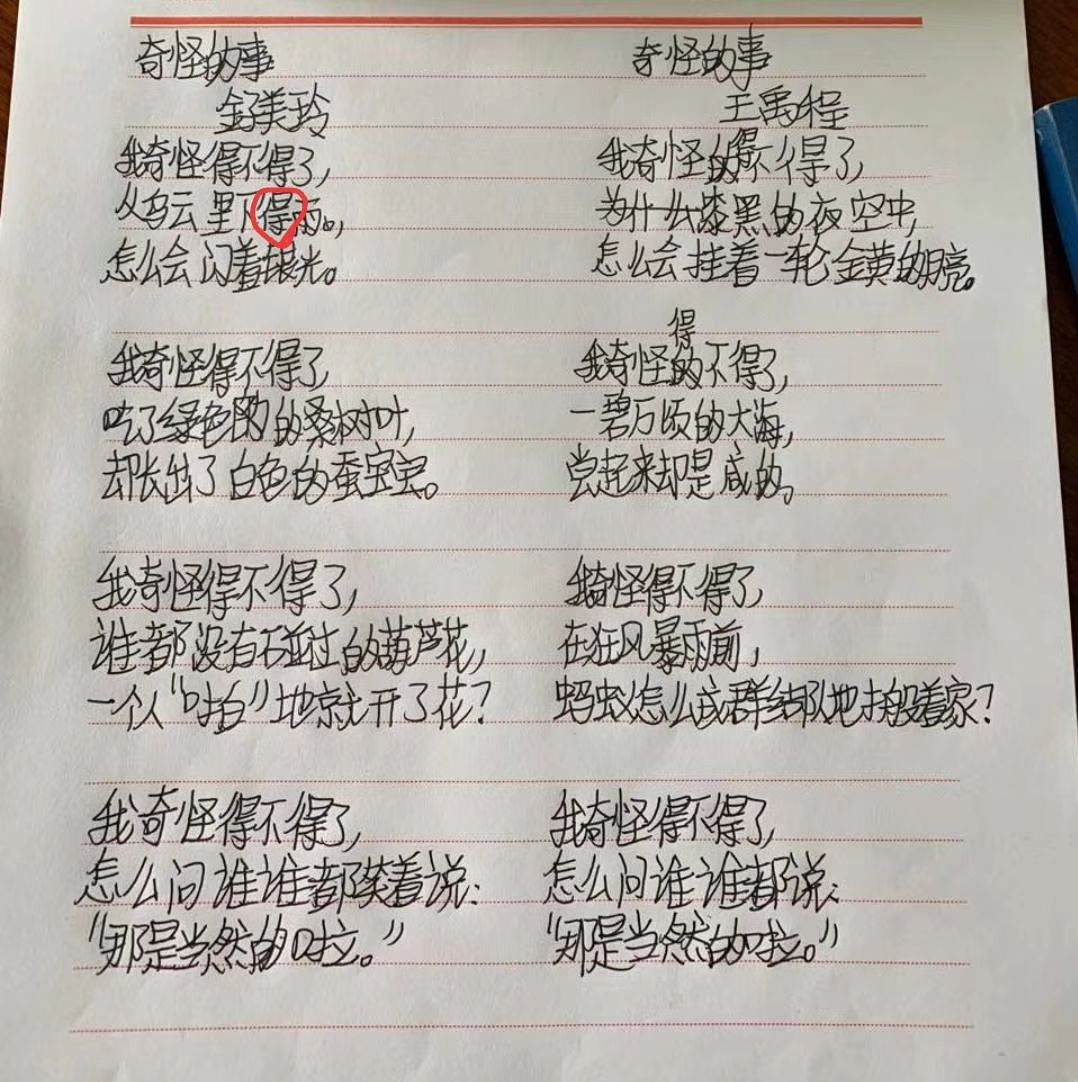 奇怪的事
金子美玲
我奇怪得不得了,
从乌云里下得雨。,
怎么会闪着银光。
我奇怪得不得了
吃了绿色的桑树叶,
却长出了白色的蚕宝宝。
我奇怪得不得了,
谁都没有碰过的葫芦花,
一个人“啪”地就开了花?
我奇怪得不得了,
怎么问谁谁都笑着说:
“那是当然的啦。”
奇怪的事
王禹程
我奇怪的得不得了,
为什么漆黑的夜空中,
怎么会挂着一轮金黄的月亮。
得
我奇怪的不得了,
一碧万顷的大海,
尝起来却是咸的。
我奇怪得不得了,
在狂风暴雨前,
蚂蚁怎么成群结队地搬着家?
我奇怪得不得了,
怎么问谁谁都说:
“那是当然的啦。”